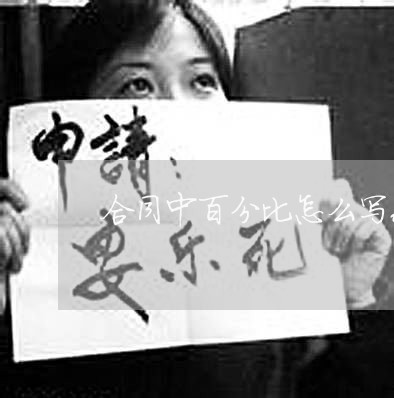 申請：
合同中百分比怎么写
安乐死